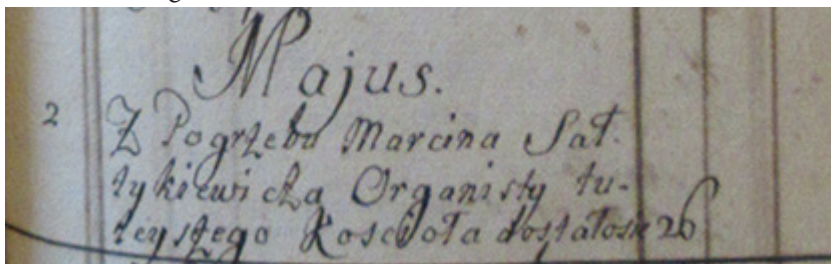 Majus.
2 Z Pogrzebu Marcina Sał-
tykiewicza Organisty tu-
teyszego Kościoła dostałosie 26